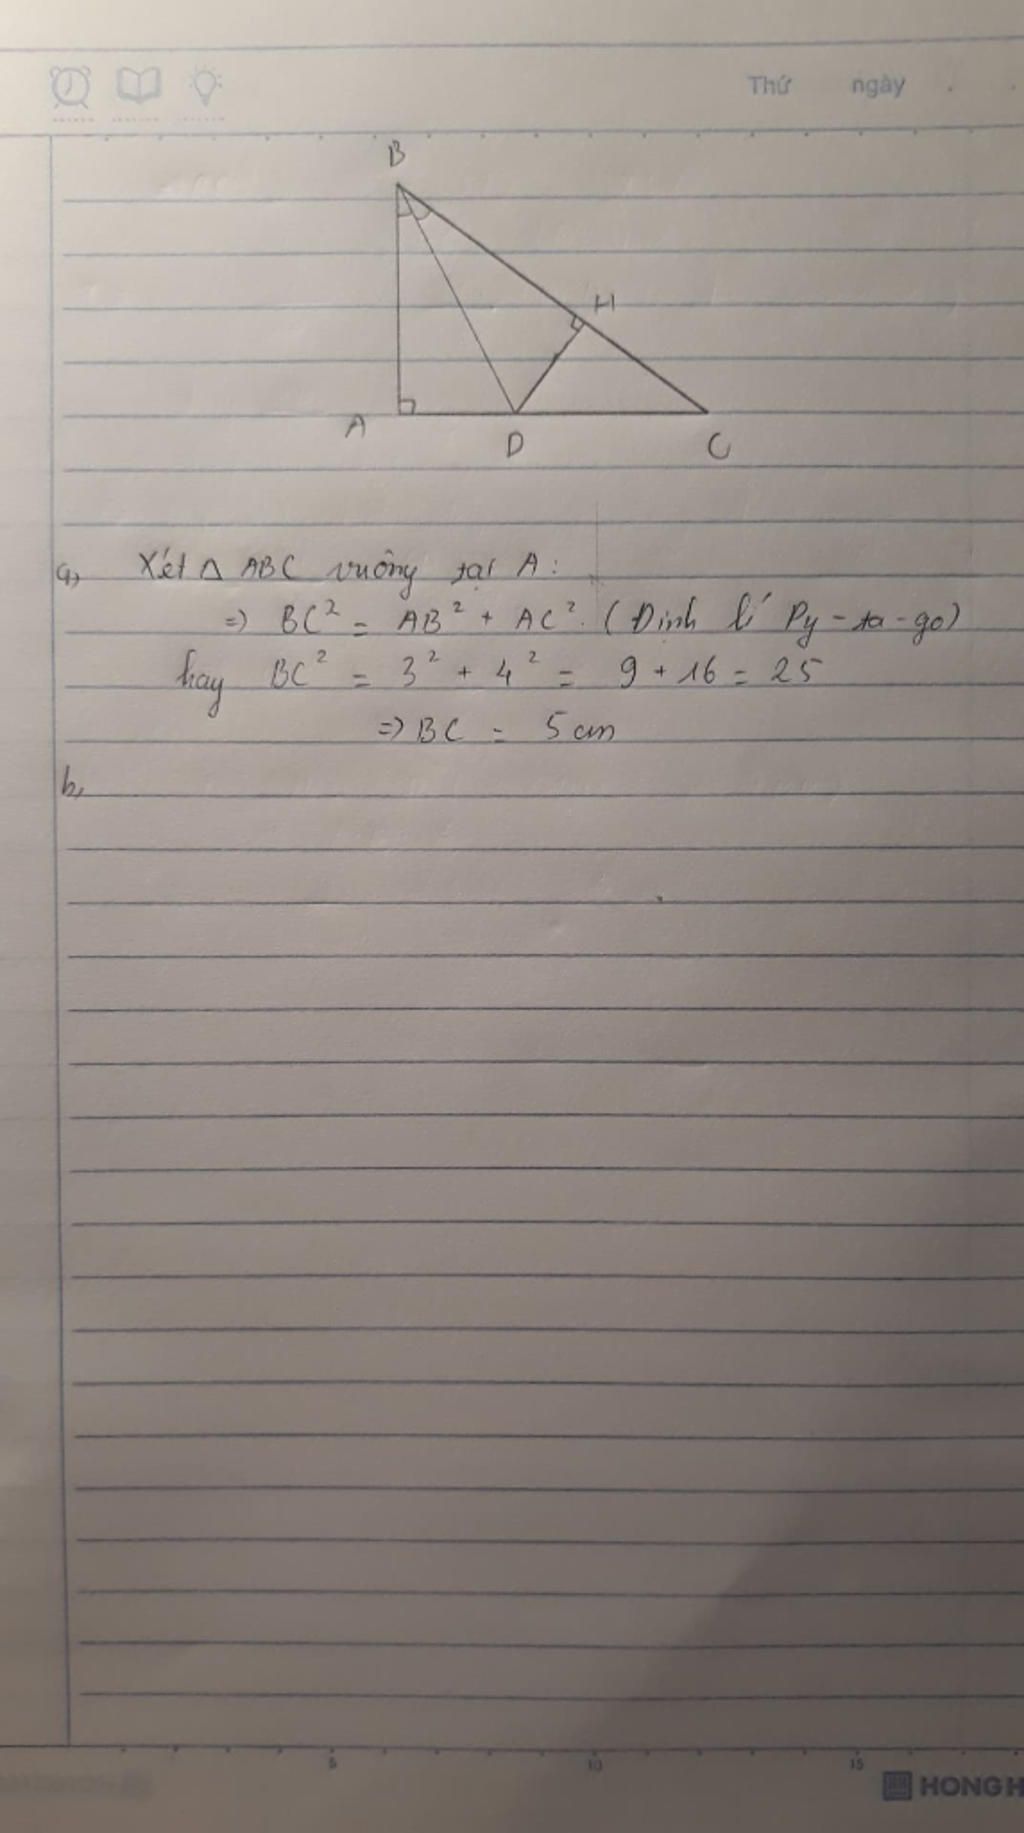 Thứ ngày
B
H
A
D
C
a, Xét △ ABC vuông tại A:
=> BC² = AB² + AC². (Định lí Py-ta-go)
hay BC² = 3² + 4² = 9 + 16 = 25
=> BC = 5 cm
b,
5 10 15
HONG H